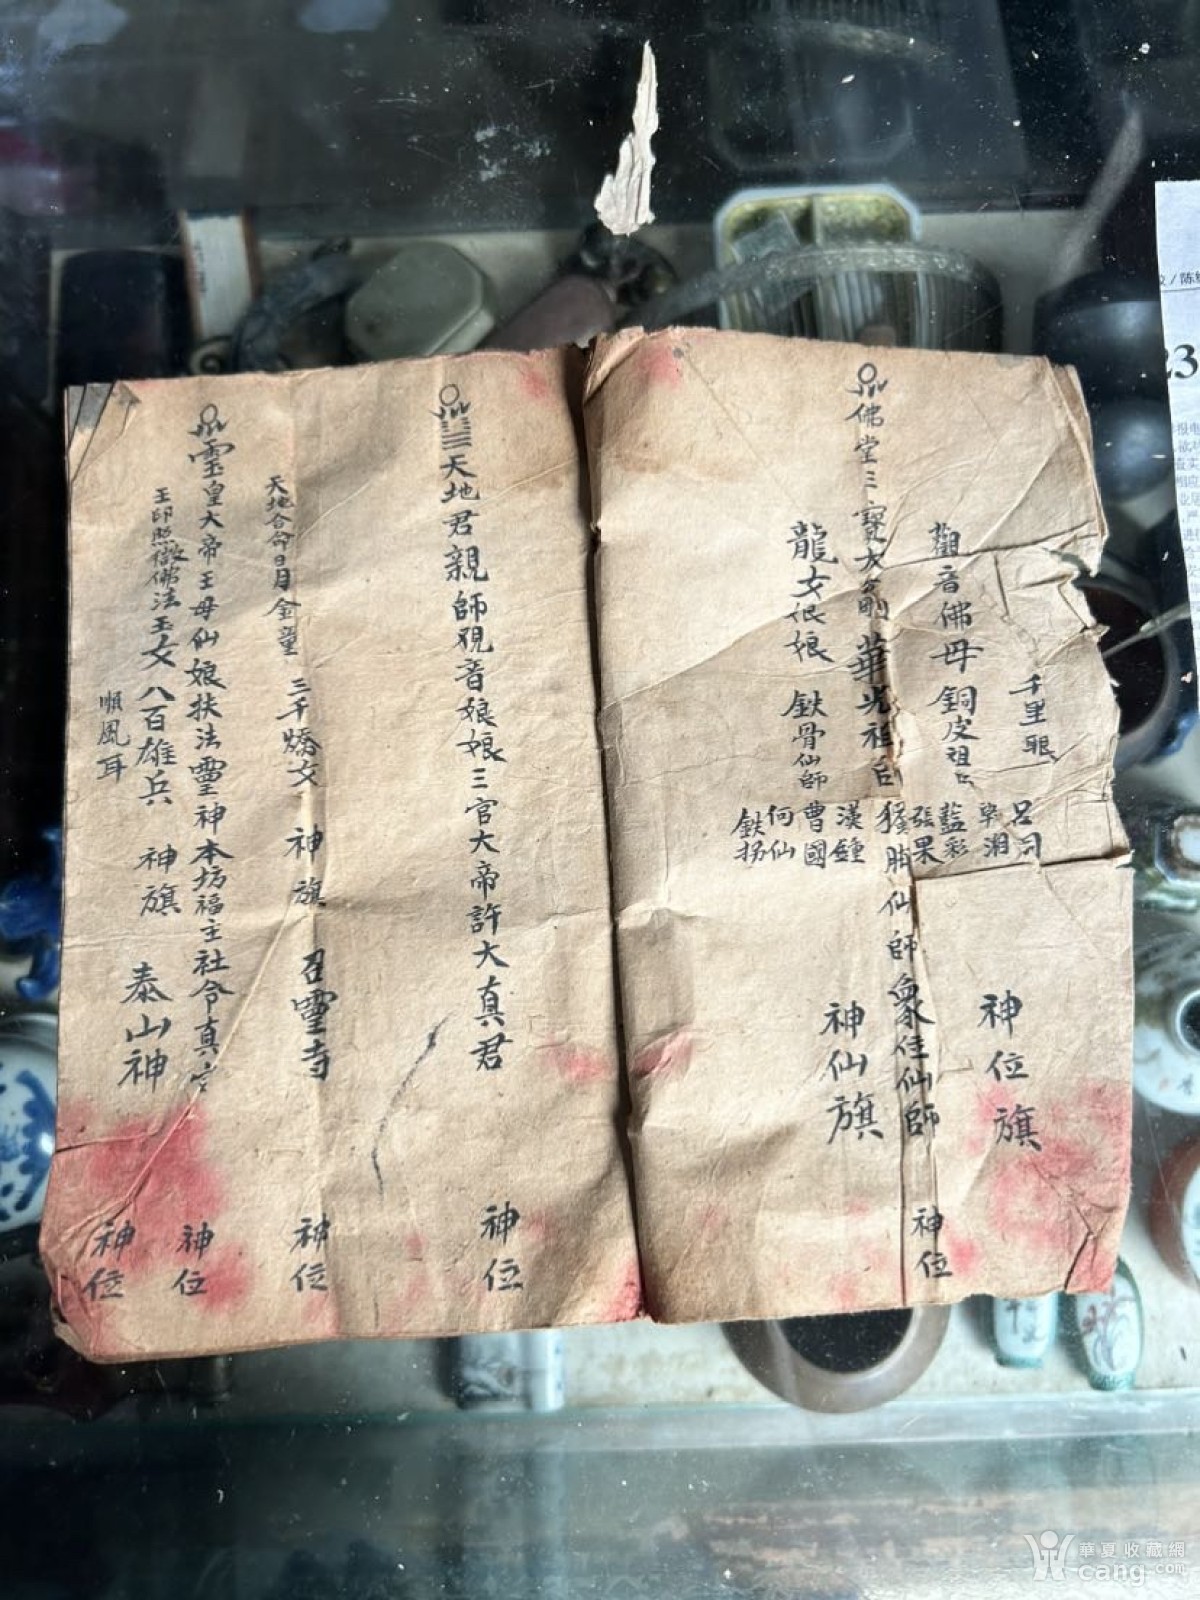 千里眼
呂洞
湘
觀音佛母銅皮祖
藍彩
張果
神位旗
佛堂三寶大 華光祖 胸仙師眾仙師 神位
漢鍾
曹國
何仙
鉄拐
龍女娘娘 鉄骨仙師
神仙旗
天地君親師观音娘娘三官大帝許大真君 神位
天地合命日月金童 三千嬌女 神旗 召靈寺 神位
皇大帝王母仙娘扶法靈神本坊福主社令真官 神位
王印照 佛法玉女八百雄兵 神旗 泰山神 神位
順風耳
陈
23
華夏收藏網
cang.com